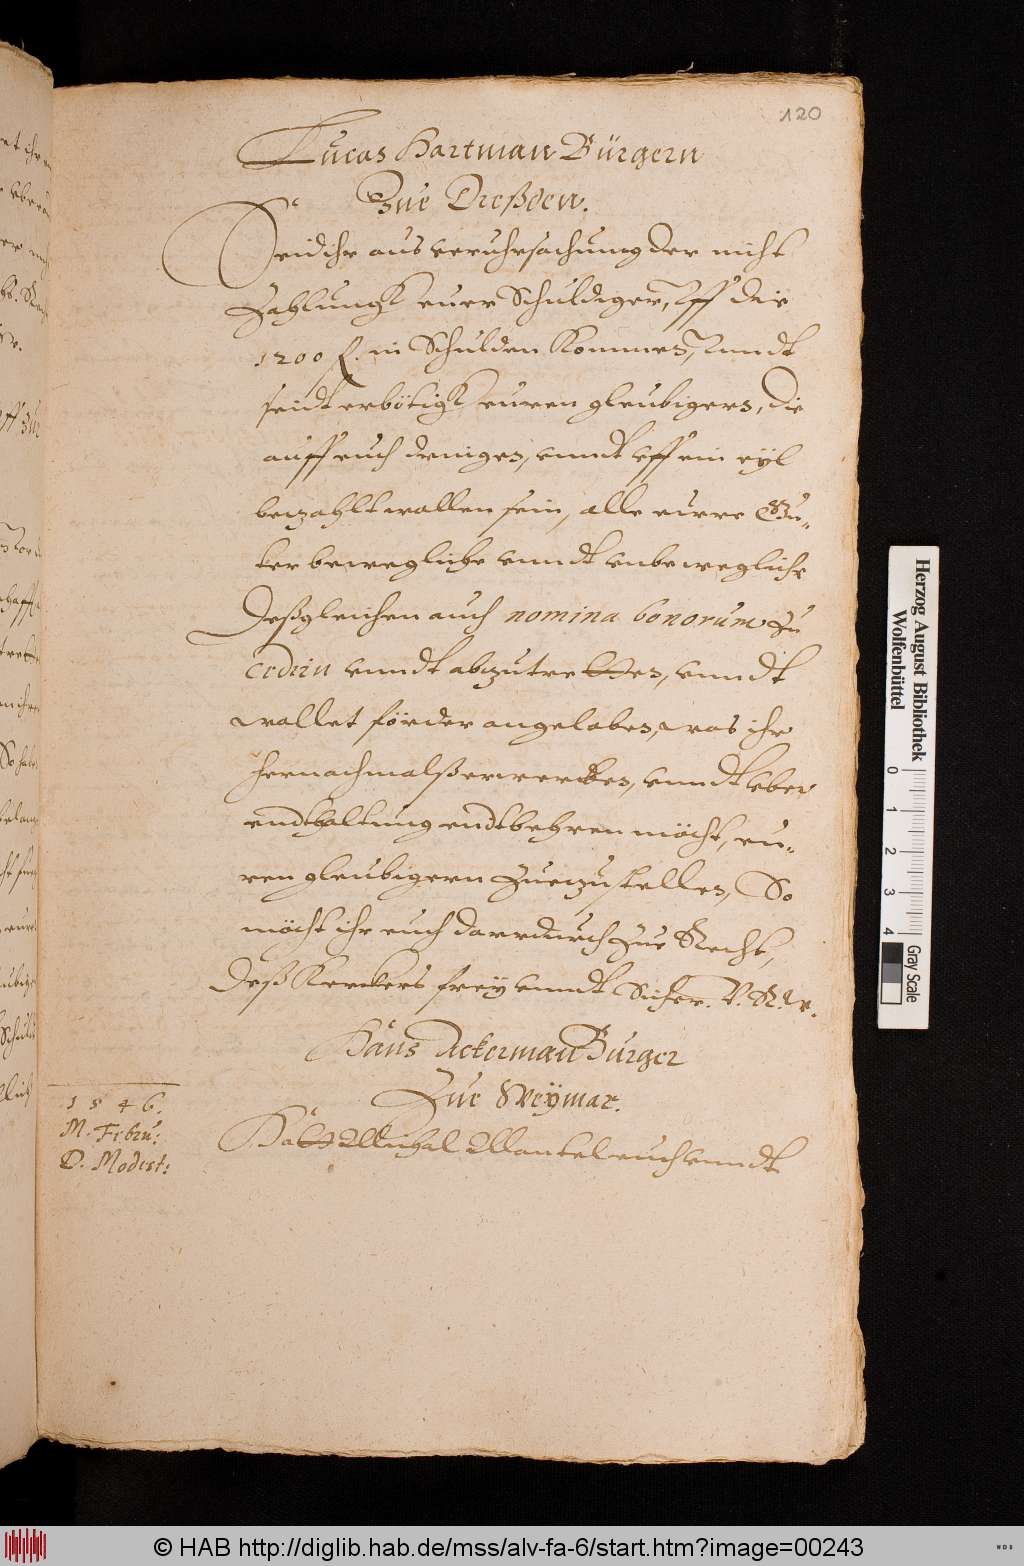 120
Lucas Hartman Bürgern
Zue Dreßden.
Seid ihr aus veruhrsachung der nicht
Zahlungk euer Schuldiger, Uff die
1200 fl. in Schulden Kommen, Unndt
seidt erbötigk euren gleubigern, die
auff euch dringen, unndt uff ein eyl
bezahlt wollen sein, alle eurre Gü-
ter bewegliche unndt unbewegliche
Deßgleichen auch nomina bonorum zu
cedirn unndt abzutretten, unndt
wollet förder angeloben, was ihr
hernachmalß erwerben, unndt uber
endthaltung endtbehren möcht, eu-
ren gleubigern Zuezustellen, So
möcht ihr euch dardurch zue Recht,
Deß Kerckers frey unndt Sicher. V. R. W.
Hans Ackerman Bürger
Zue Weÿmar.
1546.
M. Febru:
D. Modest:
Hatt Michel Mantel euch unndt
Herzog August Bibliothek
Wolfenbüttel
0 1 2 3 4
Gray Scale
© HAB http://diglib.hab.de/mss/alv-fa-6/start.htm?image=00243
WDB